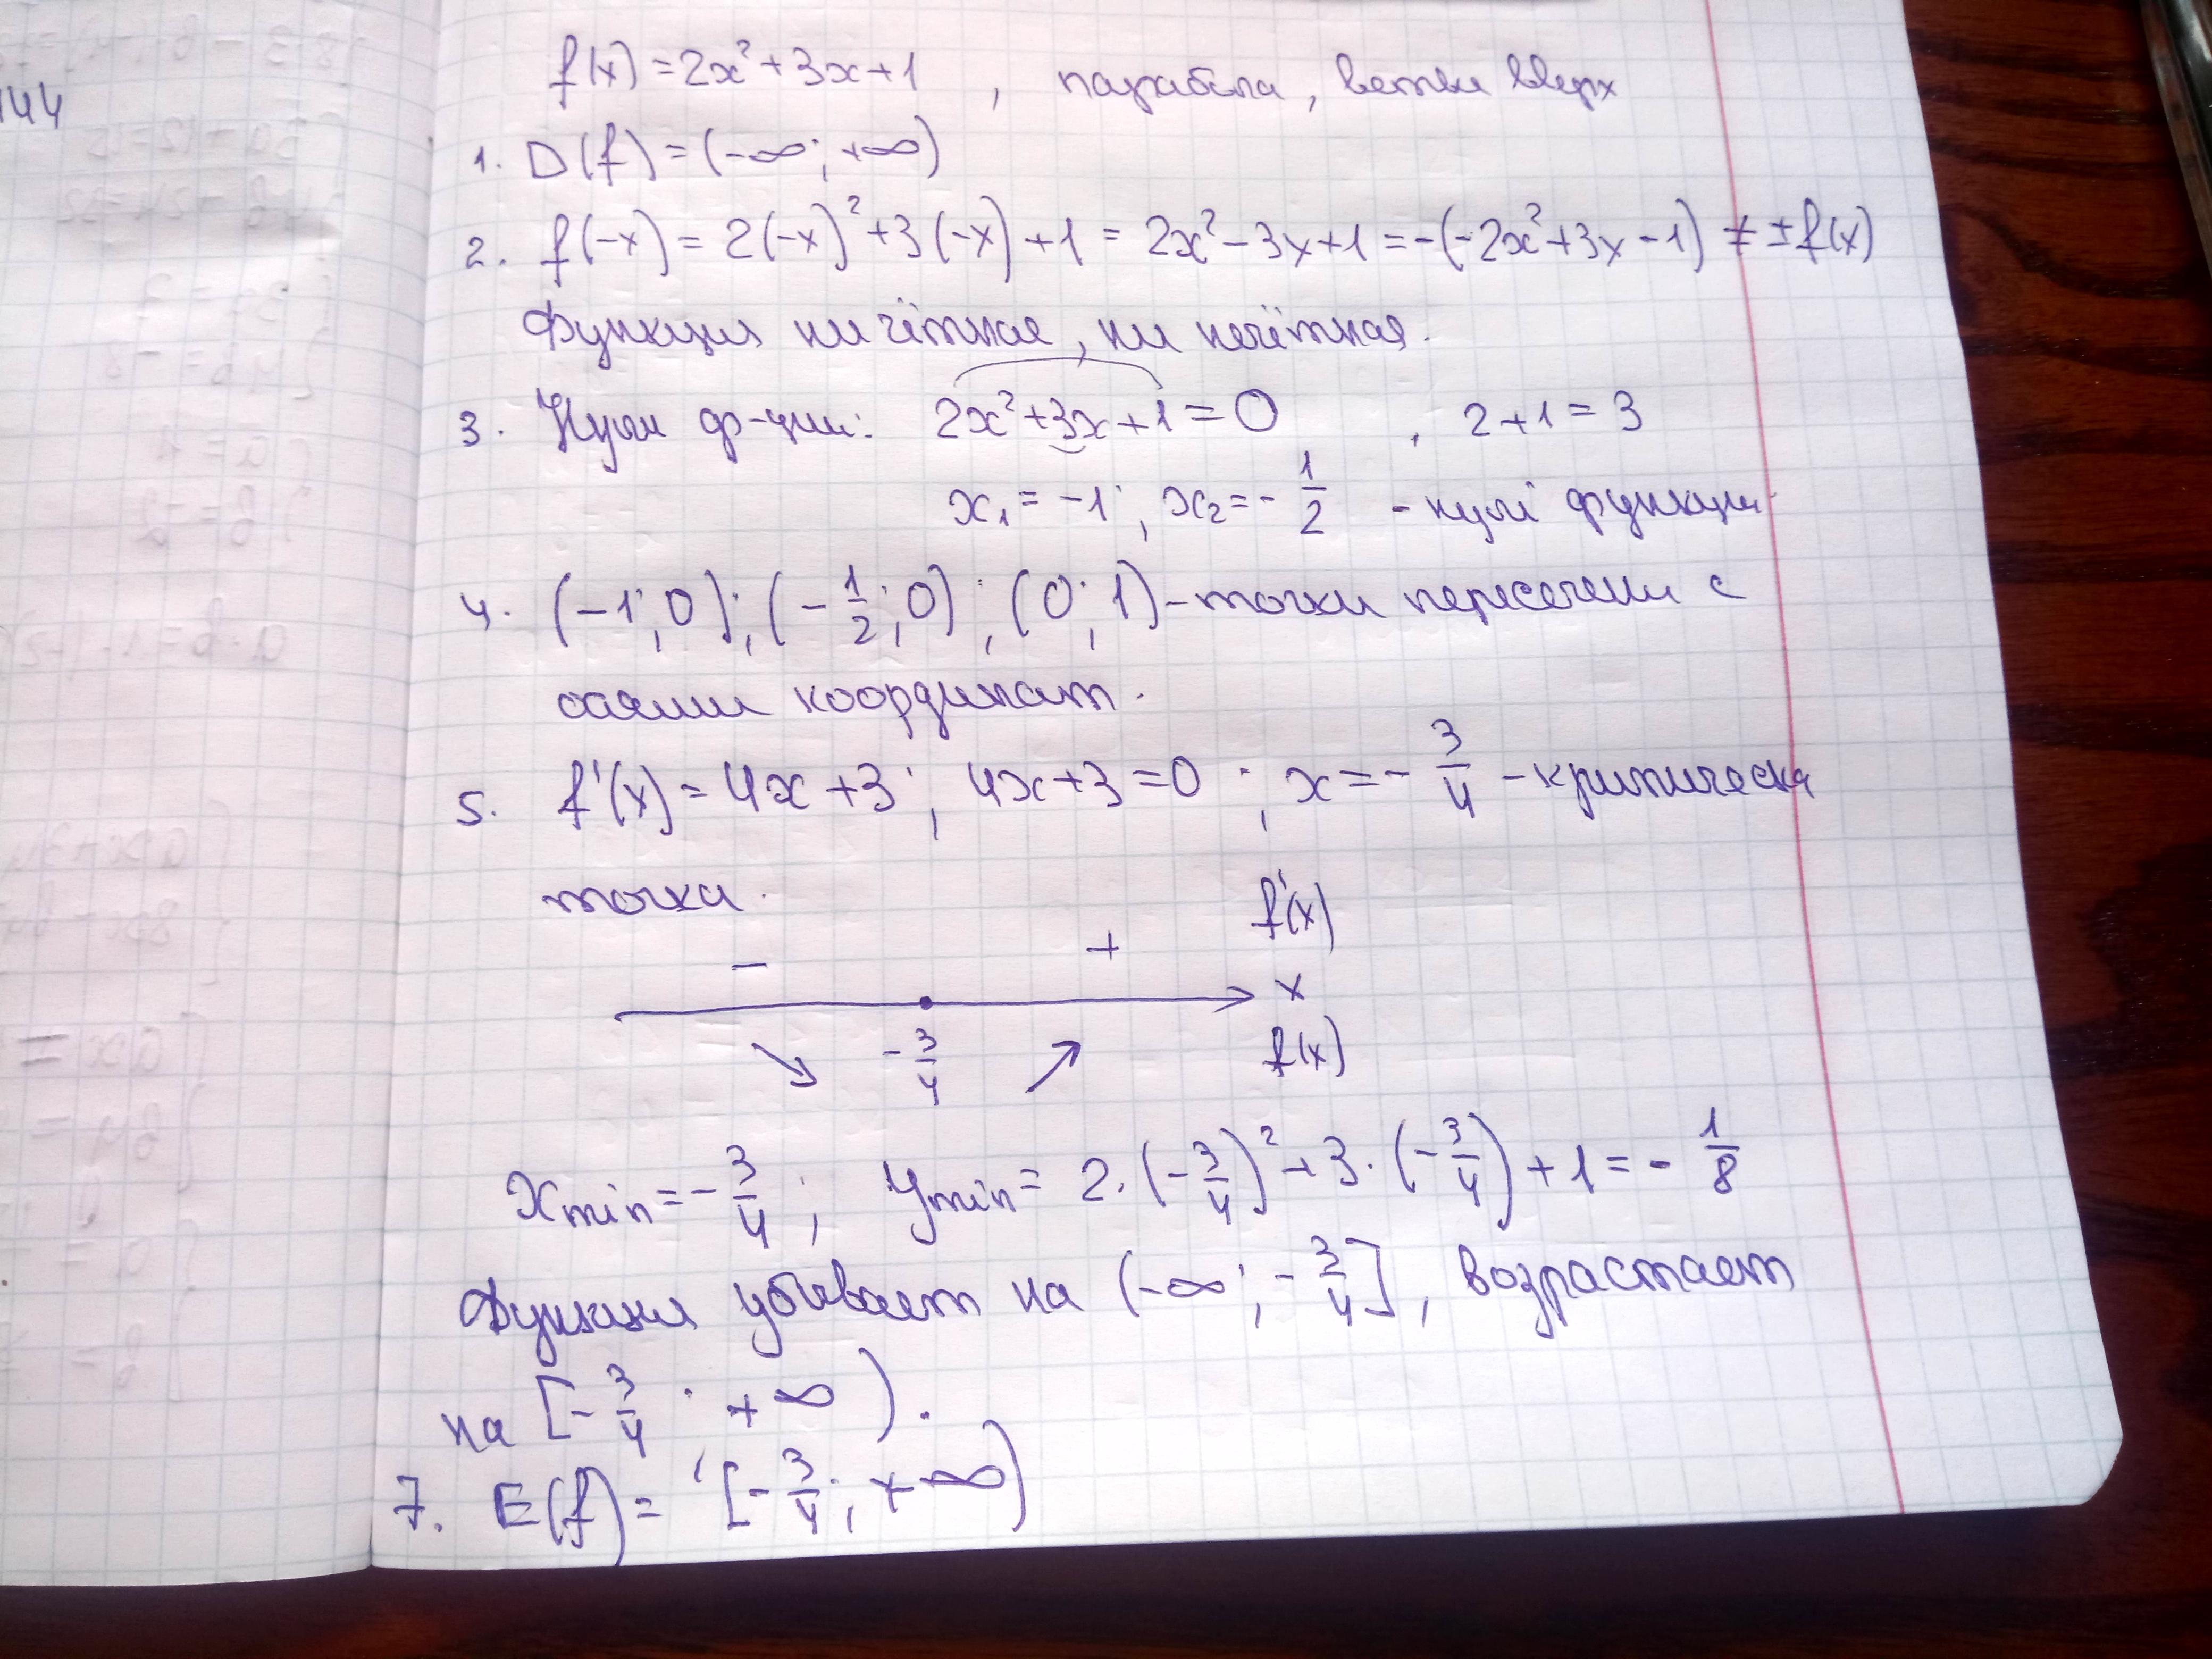 144
f(x) = 2x² + 3x + 1 , парабола, ветви вверх
1. D(f) = (-∞; +∞)
2. f(-x) = 2(-x)² + 3(-x) + 1 = 2x² - 3x + 1 = -(-2x² + 3x - 1) ≠ ±f(x)
Функция ни чётная, ни нечётная.
3. Нули ф-ции: 2x² + 3x + 1 = 0 , 2 + 1 = 3
x₁ = -1; x₂ = -1/2 - нули функции
4. (-1; 0); (-1/2; 0); (0; 1) - точки пересечения с
осями координат.
5. f'(x) = 4x + 3; 4x + 3 = 0; x = -3/4 - критическая
точка.
f'(x)
- +
x
-3/4
↘ ↗ f(x)
xmin = -3/4; ymin = 2·(-3/4)² + 3·(-3/4) + 1 = -1/8
Функция убывает на (-∞; -3/4], возрастает
на [-3/4; +∞).
7. E(f) = [-3/4; +∞)